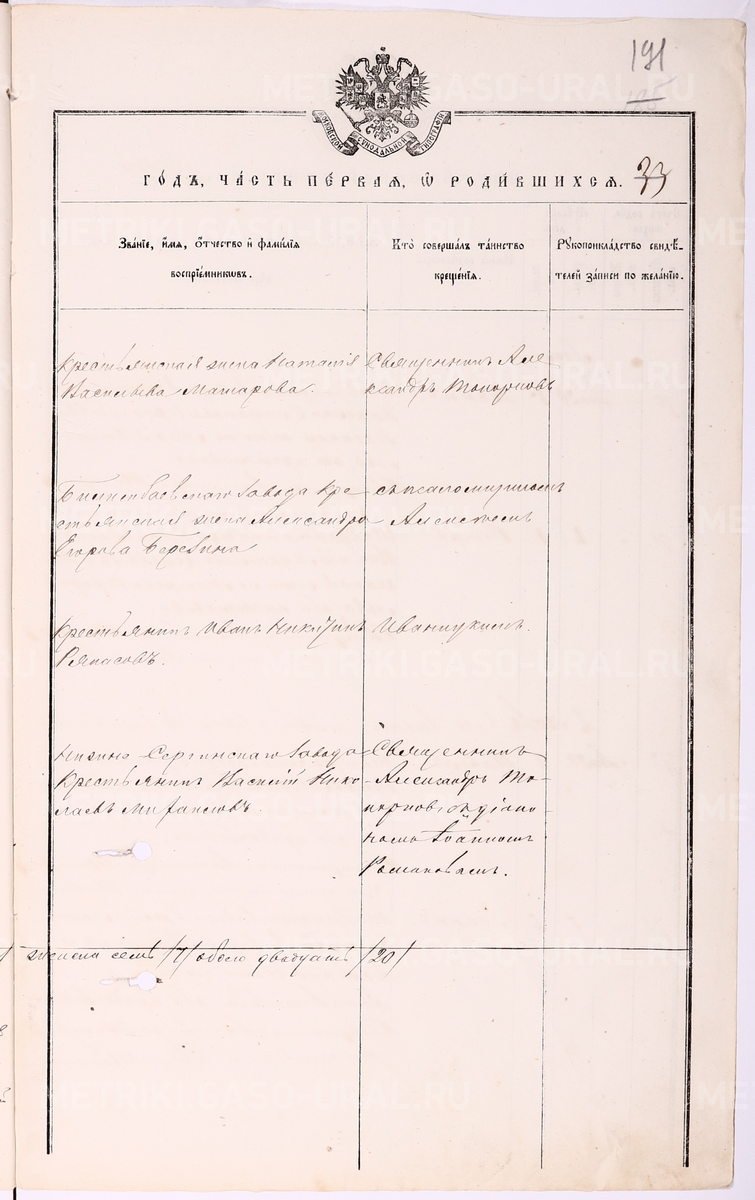 191
МОСКОВСКОЙ СѴНОДАЛЬНОЙ ТИПОГРАФІИ
ГОДЪ, ЧАСТЬ ПЕРВАЯ, Ѡ РОДИВШИХСЯ. 33
Званіе, имя, отчество и фамилія
воспріемниковъ.
Кто совершалъ таинство
крещенія.
Рукоприкладство свидѣ-
телей записи по желанію.
Крестьянская жена Наталія
Васильева Макарова.
Священникъ Але
ксандръ Топорковъ
Билимбаевскаго завода кре
стьянская жена Александра
Егорова Береѕина
съ псаломщикомъ
Алексѣемъ
Крестьянинъ Иванъ Никитинъ
Ряпасовъ.
Иваницкимъ.
Нижне-Сергинскаго завода
Крестьянинъ Василій Нико
лаевъ
Священникъ
Александръ То-
порковъ съ діако
номъ Іоанномъ
Романовымъ.
женска семь /7/ обоего двадцать /20/
METRIKI.GASO-URAL.RU